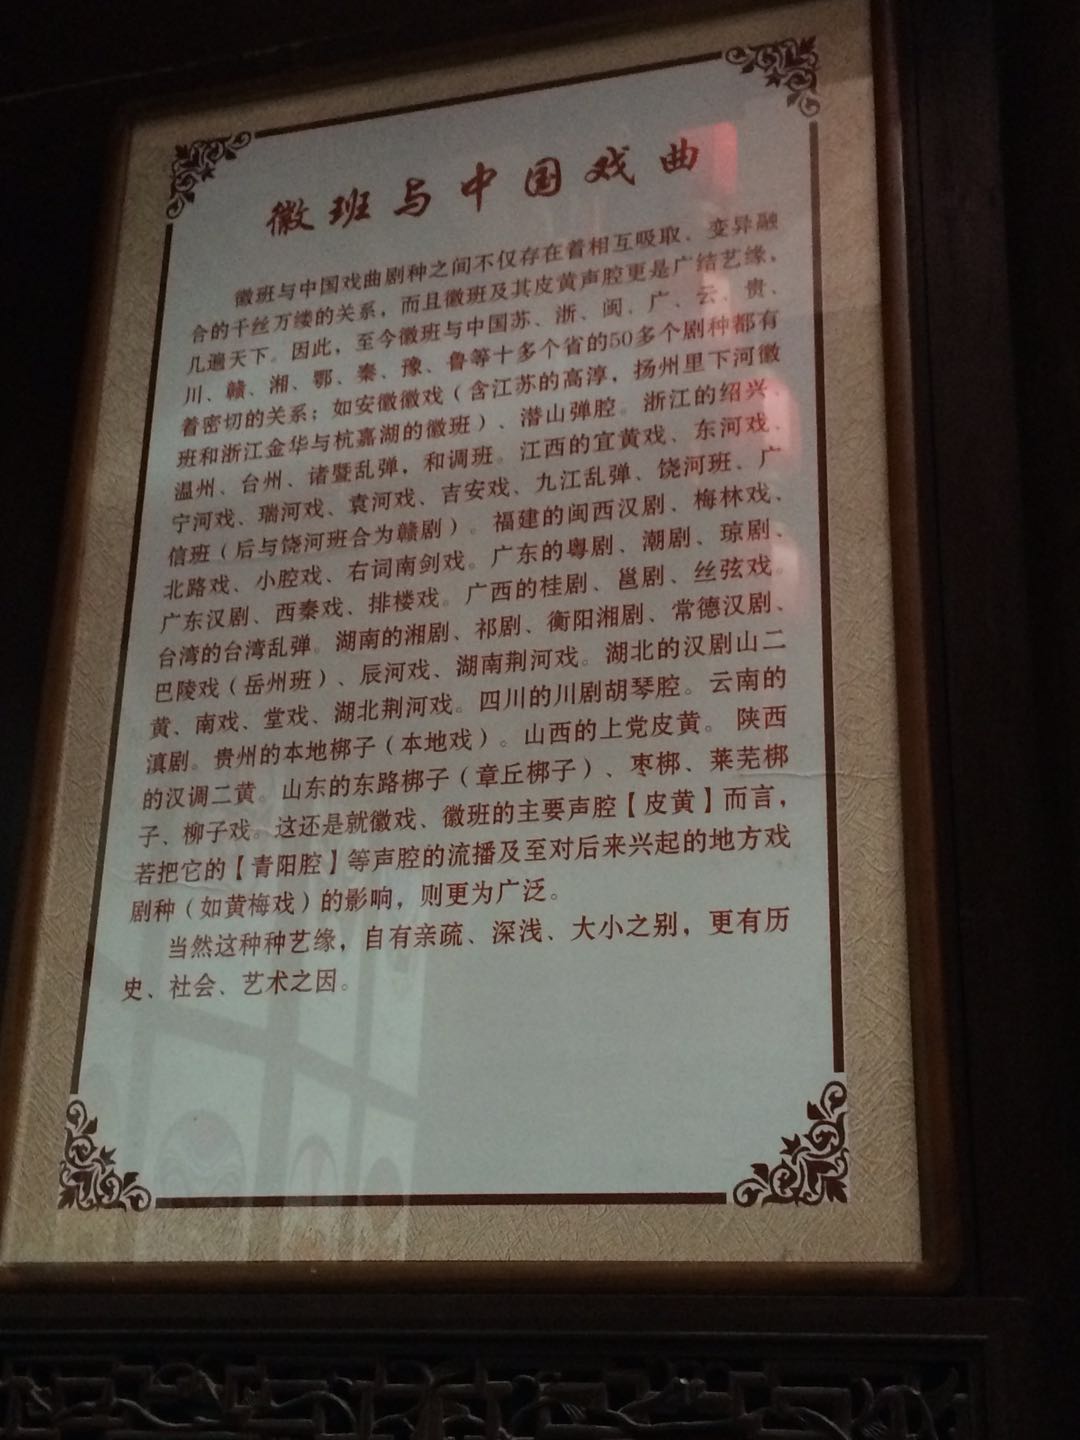 徽班与中国戏曲
徽班与中国戏曲剧种之间不仅存在着相互吸取、变异融
合的千丝万缕的关系，而且徽班及其皮黄声腔更是广结艺缘，
几遍天下。因此，至今徽班与中国苏、浙、闽、广、云、贵、
川、赣、湘、鄂、秦、豫、鲁等十多个省的50多个剧种都有
着密切的关系；如安徽徽戏（含江苏的高淳，扬州里下河徽
班和浙江金华与杭嘉湖的徽班）、潜山弹腔。浙江的绍兴、
温州、台州、诸暨乱弹，和调班。江西的宜黄戏、东河戏、
宁河戏、瑞河戏、袁河戏、吉安戏、九江乱弹、饶河班、广
信班（后与饶河班合为赣剧）。福建的闽西汉剧、梅林戏、
北路戏、小腔戏、右词南剑戏。广东的粤剧、潮剧、琼剧、
广东汉剧、西秦戏、排楼戏。广西的桂剧、邕剧、丝弦戏。
台湾的台湾乱弹。湖南的湘剧、祁剧、衡阳湘剧、常德汉剧、
巴陵戏（岳州班）、辰河戏、湖南荆河戏。湖北的汉剧山二
黄、南戏、堂戏、湖北荆河戏。四川的川剧胡琴腔。云南的
滇剧。贵州的本地梆子（本地戏）。山西的上党皮黄。陕西
的汉调二黄。山东的东路梆子（章丘梆子）、枣梆、莱芜梆
子、柳子戏。这还是就徽戏、徽班的主要声腔【皮黄】而言，
若把它的【青阳腔】等声腔的流播及至对后来兴起的地方戏
剧种（如黄梅戏）的影响，则更为广泛。
当然这种种艺缘，自有亲疏、深浅、大小之别，更有历
史、社会、艺术之因。